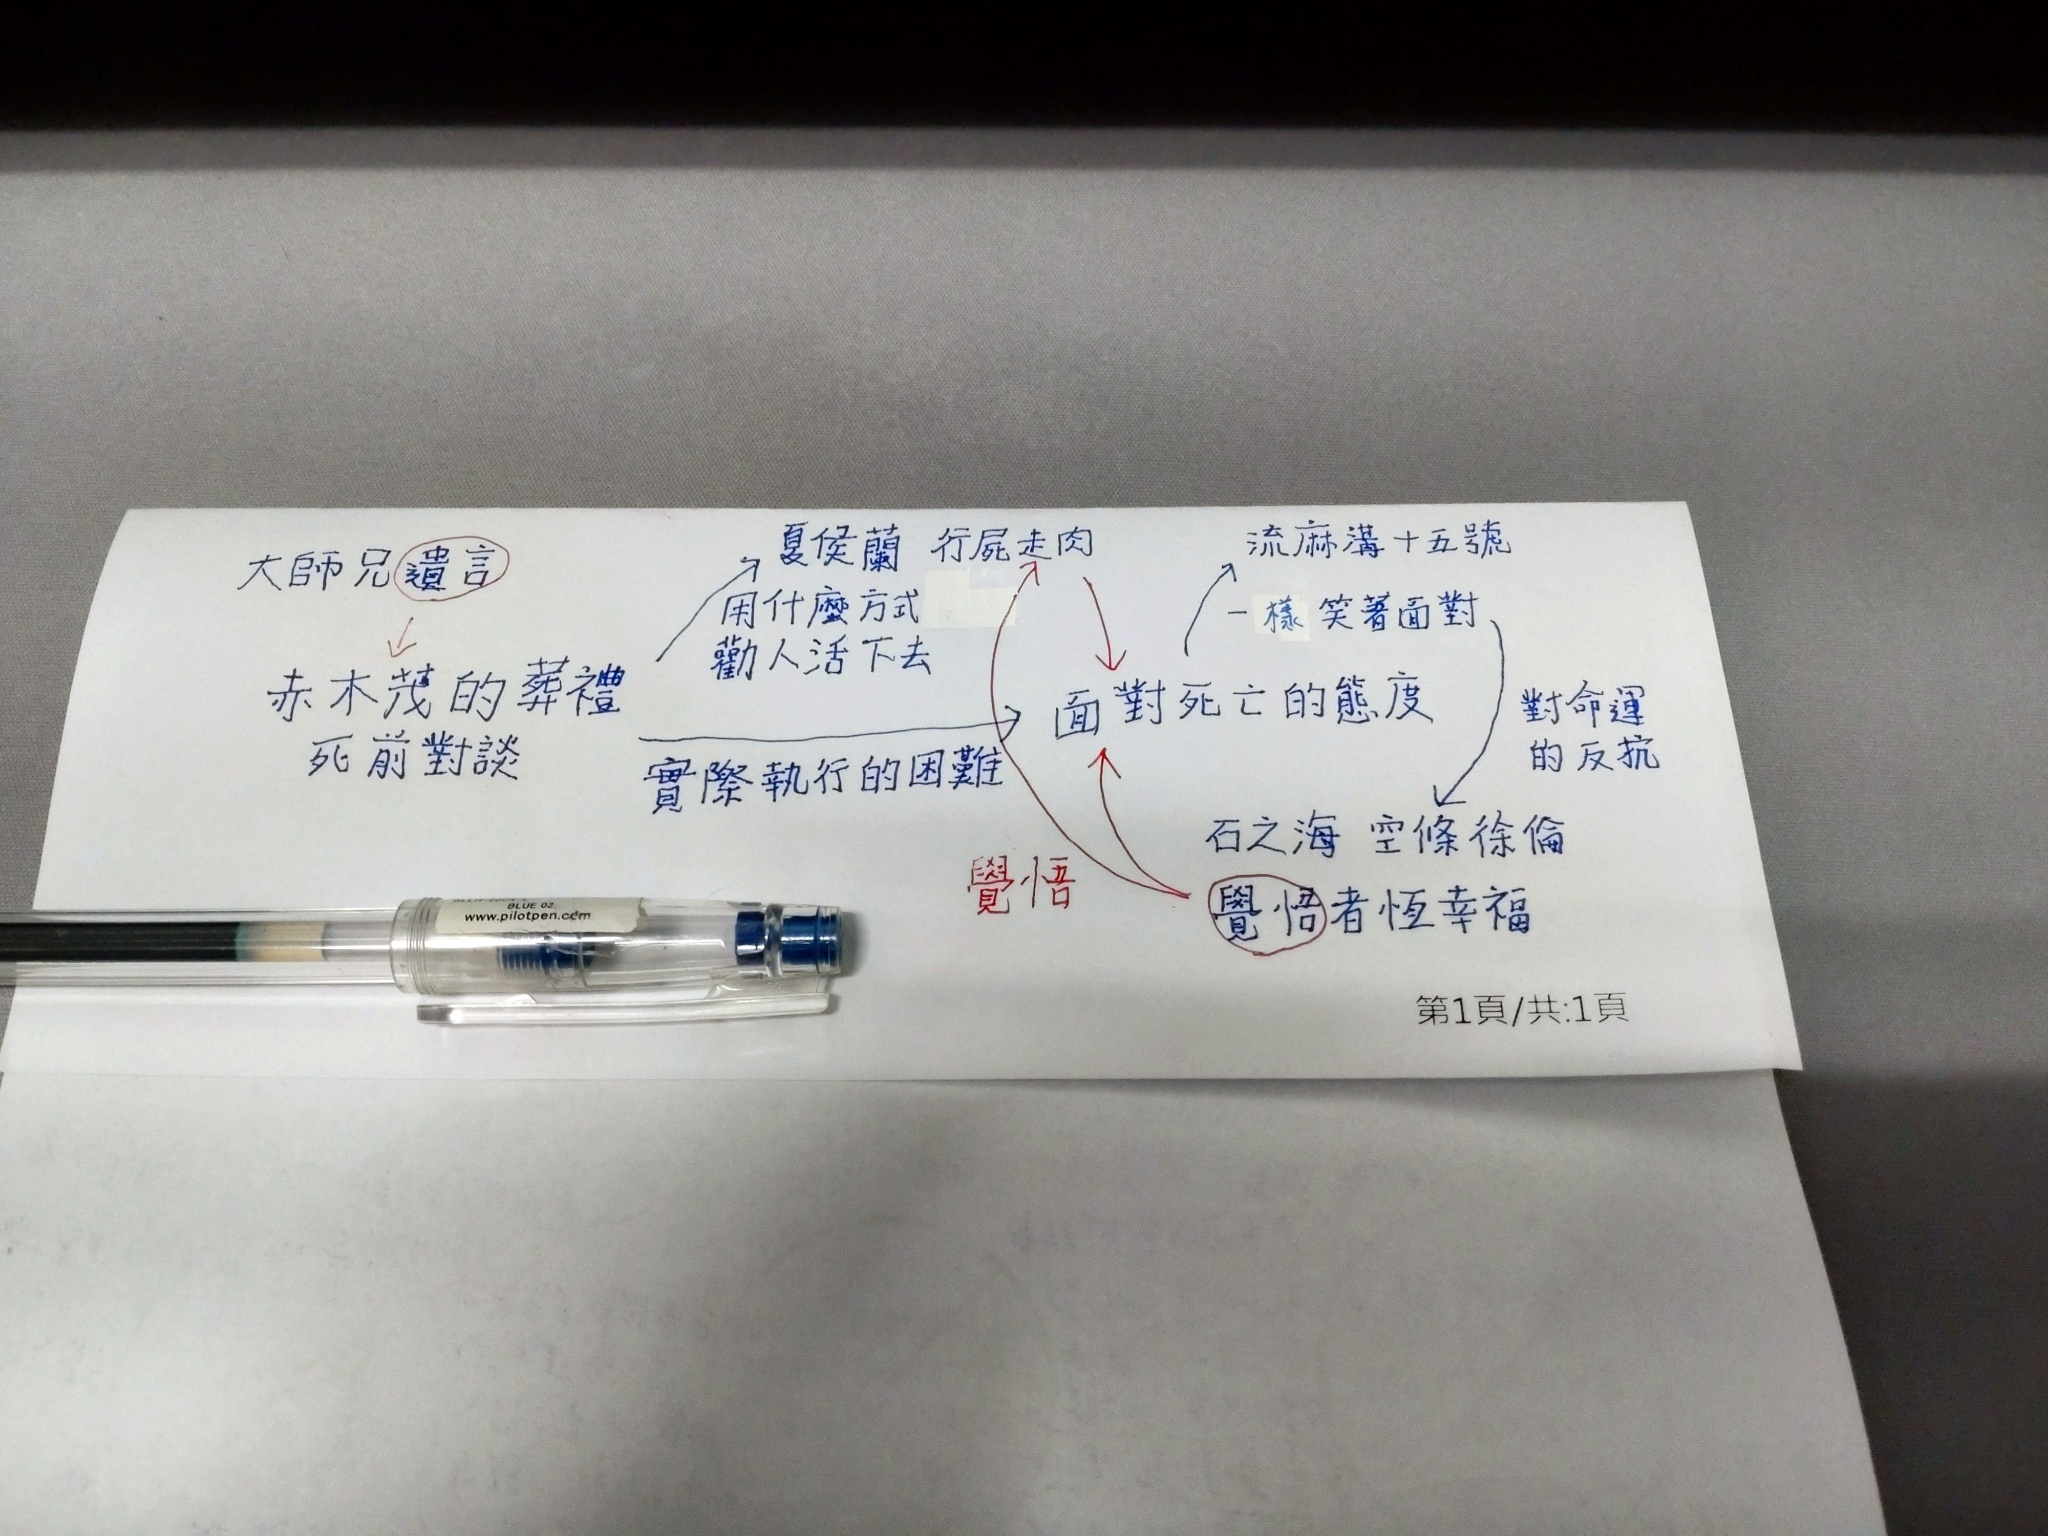 大師兄遺言
赤木茂的葬禮
死前對談
夏侯蘭 行屍走肉
用什麼方式
勸人活下去
實際執行的困難
流麻溝十五號
一樣笑著面對
面對死亡的態度
對命運
的反抗
石之海 空條徐倫
覺悟者恆幸福
覺悟
第1頁/共:1頁
BLUE 03.
www.pilotpen.com